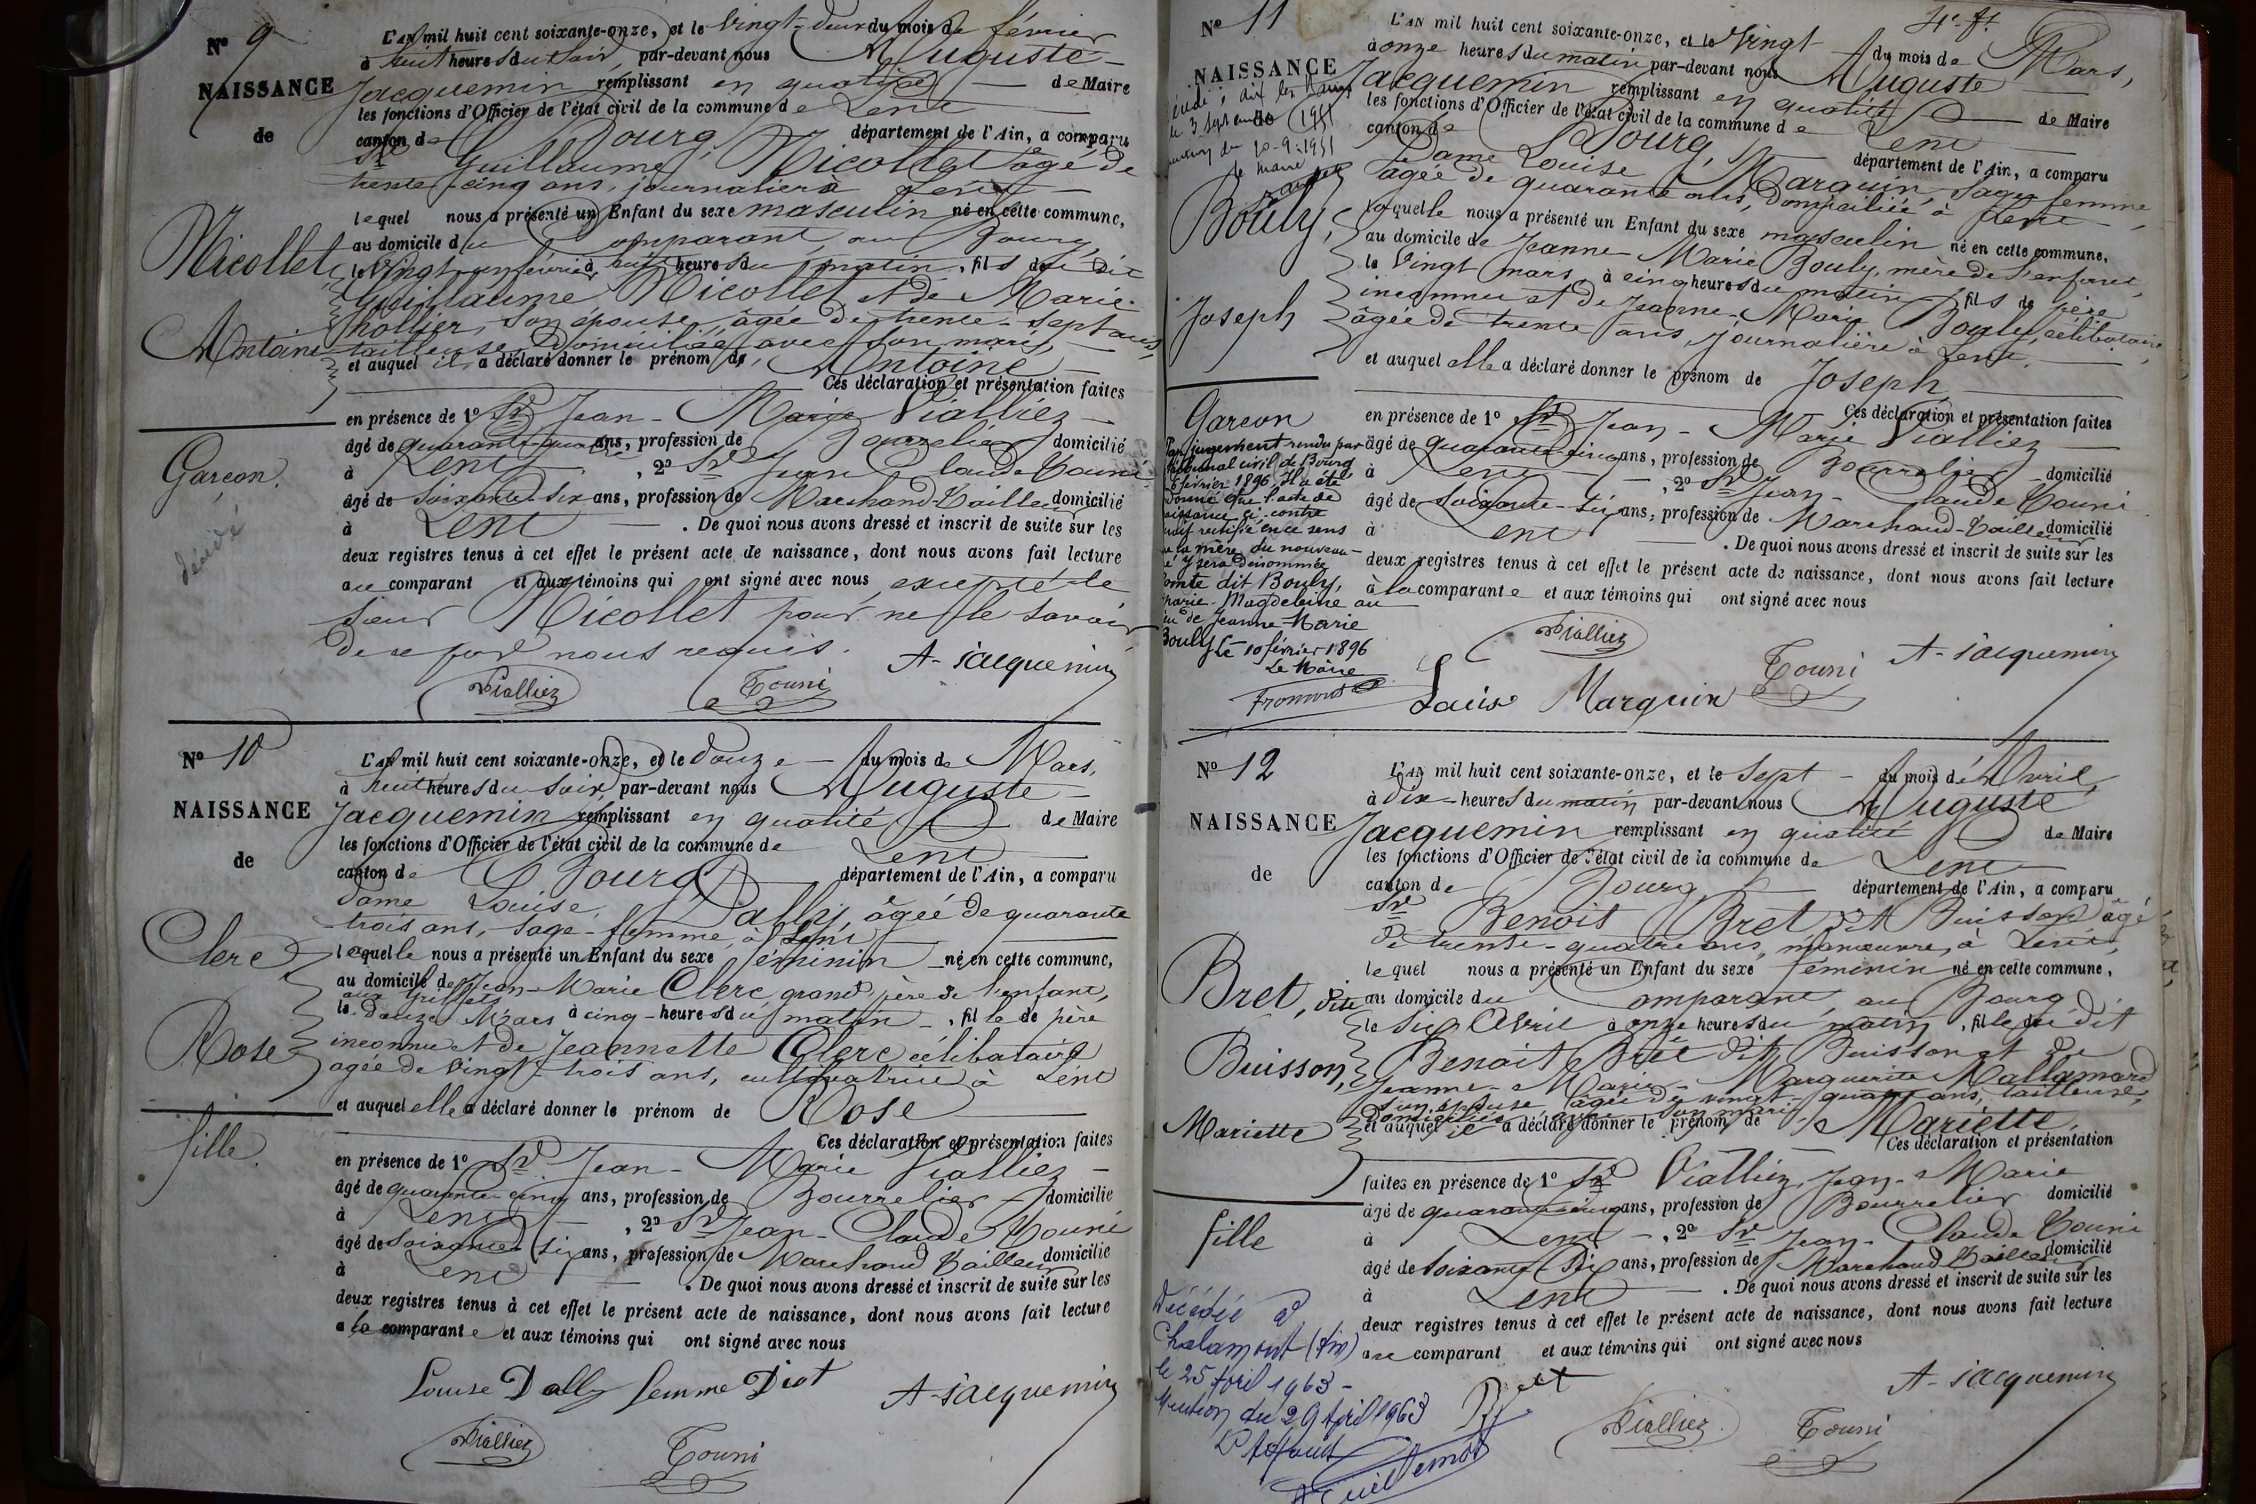 N° 9
NAISSANCE
de
Nicollet
Antoine
Garçon.
décédé
L'AN mil huit cent soixante-onze, et le Vingt-deux du mois de février
à huit heures du soir, par-devant nous Auguste
Jacquemin remplissant en qualité de Maire
les fonctions d'Officier de l'état civil de la commune de Lent
canton de Bourg, département de l'Ain, a comparu
Sr Guillaume Nicollet âgé de
trente-cinq ans, journalier à Lent
lequel nous a présenté un Enfant du sexe masculin né en cette commune,
au domicile du Comparant, au Bourg,
le Vingt-un février à huit heures du matin, fils de dit
Guillaume Nicollet et de Marie
son épouse, âgée de trente-sept ans,
tailleuse, domiciliée avec son mari,
et auquel il a déclaré donner le prénom de Antoine
Ces déclaration et présentation faites
en présence de 1° Sr Jean-Marie Vialliez
âgé de quarante-quatre ans, profession de Bourrelier domicilié
à Lent, 2° Sr Jean Claude Touni
âgé de soixante-six ans, profession de Marchand-Tailleur domicilié
à Lent. De quoi nous avons dressé et inscrit de suite sur les
deux registres tenus à cet effet le présent acte de naissance, dont nous avons fait lecture
au comparant et aux témoins qui ont signé avec nous, excepté le
sieur Nicollet pour ne le savoir
de ce fait nous requis.
A-Jacquemin
Vialliez Touni
N° 10
NAISSANCE
de
Clerc
Rose
fille.
L'AN mil huit cent soixante-onze, et le douze du mois de Mars,
à huit heures du soir, par-devant nous Auguste
Jacquemin remplissant en qualité de Maire
les fonctions d'Officier de l'état civil de la commune de Lent
canton de Bourg département de l'Ain, a comparu
Dame Louise Dally, âgée de quarante
trois ans, sage-femme, à Lent
laquelle nous a présenté un Enfant du sexe féminin né en cette commune,
au domicile de Jean-Marie Clerc, grand père de l'enfant,
aux Grillets
le douze Mars à cinq heures du matin, fille de père
inconnu et de Jeannette Clerc célibataire
âgée de Vingt-trois ans, cultivatrice à Lent
et auquel elle a déclaré donner le prénom de Rose
Ces déclaration et présentation faites
en présence de 1° Sr Jean-Marie Vialliez
âgé de quarante-cinq ans, profession de Bourrelier domicilié
à Lent, 2° Sr Jean-Claude Touni
âgé de soixante-six ans, profession de Marchand Tailleur domicilié
à Lent. De quoi nous avons dressé et inscrit de suite sur les
deux registres tenus à cet effet le présent acte de naissance, dont nous avons fait lecture
à la comparante et aux témoins qui ont signé avec nous
Louise Dally femme Diot A-Jacquemin
Vialliez Touni
N° 11
NAISSANCE
le 3 septembre 1951
10-9-1951
le Maire
Bouly,
Joseph
Garçon
Par jugement rendu par
tribunal civil de Bourg
février 1896, il a été
que l'acte de
naissance ci-contre
rectifié en ce sens
la mère du nouveau-
né y sera dénommée
Comte dit Bouly,
Marie-Magdeleine au
lieu de Jeanne Marie
Bouly Le 10 février 1896
Le Maire
L'AN mil huit cent soixante-onze, et le Vingt du mois de Mars,
à onze heures du matin par-devant nous Auguste
Jacquemin remplissant en qualité de Maire
les fonctions d'Officier de l'état civil de la commune de Lent
canton de Bourg, département de l'Ain, a comparu
Dame Louise Marquin, sage-femme
âgée de quarante ans, domiciliée à Lent
laquelle nous a présenté un Enfant du sexe masculin né en cette commune,
au domicile de Jeanne-Marie Bouly, mère de l'enfant,
le Vingt mars à cinq heures du matin fils de père
inconnu et de Jeanne-Marie Bouly, célibataire
âgée de trente ans, journalière à Lent.
et auquel elle a déclaré donner le prénom de Joseph
Ces déclaration et présentation faites
en présence de 1° Sr Jean-Marie Vialliez
âgé de quarante-cinq ans, profession de Bourrelier domicilié
à Lent, 2° Sr Jean-Claude Touni
âgé de soixante-six ans, profession de Marchand-Tailleur domicilié
à Lent. De quoi nous avons dressé et inscrit de suite sur les
deux registres tenus à cet effet le présent acte de naissance, dont nous avons fait lecture
à la comparante et aux témoins qui ont signé avec nous
Vialliez Touni A-Jacquemin
Louise Marquin
N° 12
NAISSANCE
de
Bret, dite
Buisson,
Mariette
fille
Décédée à
Chalamont (Ain)
le 25 Avril 1963-
Mention du 29 Avril 1963
L'AN mil huit cent soixante-onze, et le Sept du mois d'Avril,
à dix heures du matin par-devant nous Auguste
Jacquemin remplissant en qualité de Maire
les fonctions d'Officier de l'état civil de la commune de Lent
canton de Bourg département de l'Ain, a comparu
Sr Benoit Bret dit Buisson âgé
de trente-quatre ans, manœuvre, à Lent,
lequel nous a présenté un Enfant du sexe féminin né en cette commune,
au domicile du Comparant, au Bourg
le six Avril à onze heures du matin, fille du dit
Benoit Bret dit Buisson et de
Jeanne-Marie-Marguerite Mallamard
son épouse âgée de vingt-quatre ans, tailleuse,
domiciliée avec son mari
et auquel il a déclaré donner le prénom de Mariette.
Ces déclaration et présentation
faites en présence de 1° Sr Vialliez, Jean-Marie
âgé de quarante-cinq ans, profession de Bourrelier domicilié
à Lent, 2° Sr Jean-Claude Touni
âgé de soixante-six ans, profession de Marchand Tailleur domicilié
à Lent. De quoi nous avons dressé et inscrit de suite sur les
deux registres tenus à cet effet le présent acte de naissance, dont nous avons fait lecture
au comparant et aux témoins qui ont signé avec nous
A-Jacquemin
Bret Vialliez Touni